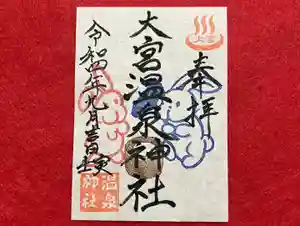 奉拝
大宮温泉神社
令和四年九月吉日
大宮
温泉
神社